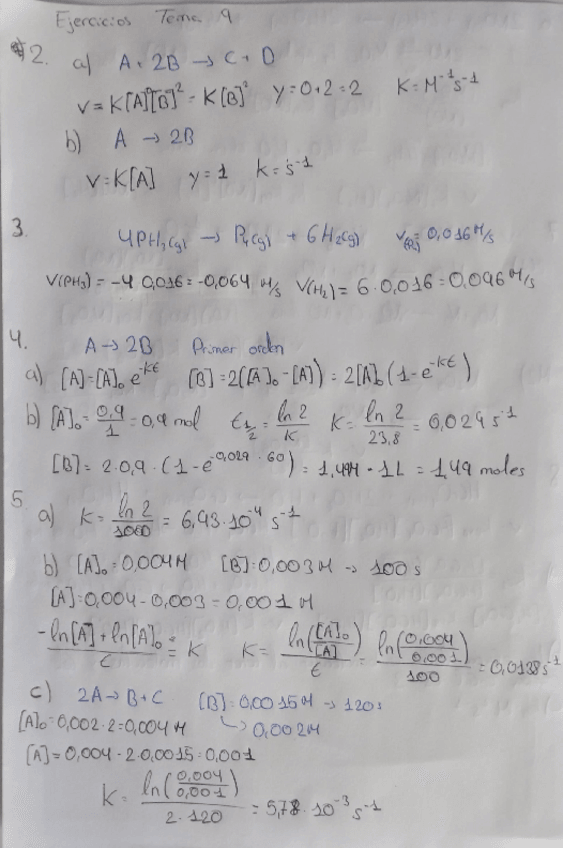 Ejercicios Tema 9
2. a) A + 2B → C + D
v = K[A]⁰[B]² = K[B]² y = 0+2 = 2 K = M⁻¹s⁻¹
b) A → 2B
v = K[A] y = 1 k = s⁻¹
3. 4PH₃(g) → P₄(g) + 6H₂(g) v(P₄) = 0,016 M/s
v(PH₃) = -4·0,016 = -0,064 M/s v(H₂) = 6·0,016 = 0,096 M/s
4. A → 2B Primer orden
a) [A] = [A]₀ e^-kt [B] = 2([A]₀ - [A]) = 2[A]₀(1 - e^-kt)
b) [A]₀ = 0,9/1 = 0,9 mol t½ = ln 2/K K = ln 2/23,8 = 0,029 s⁻¹
[B] = 2·0,9·(1 - e^-0,029·60) = 1,49M · 1L = 1,49 moles
5. a) K = ln 2/1000 = 6,93·10⁻⁴ s⁻¹
b) [A]₀ = 0,004M [B] = 0,003M → 100s
[A] = 0,004 - 0,003 = 0,001 M
-ln[A] + ln[A]₀/t = K K = ln([A]₀/[A])/t = ln(0,004/0,001)/100 = 0,0138 s⁻¹
c) 2A → B + C [B] = 0,0015M → 120s
[A]₀ = 0,002·2 = 0,004 M ↳ 0,002M
[A] = 0,004 - 2·0,0015 = 0,001
K = ln(0,004/0,001)/2·120 = 5,78·10⁻³ s⁻¹